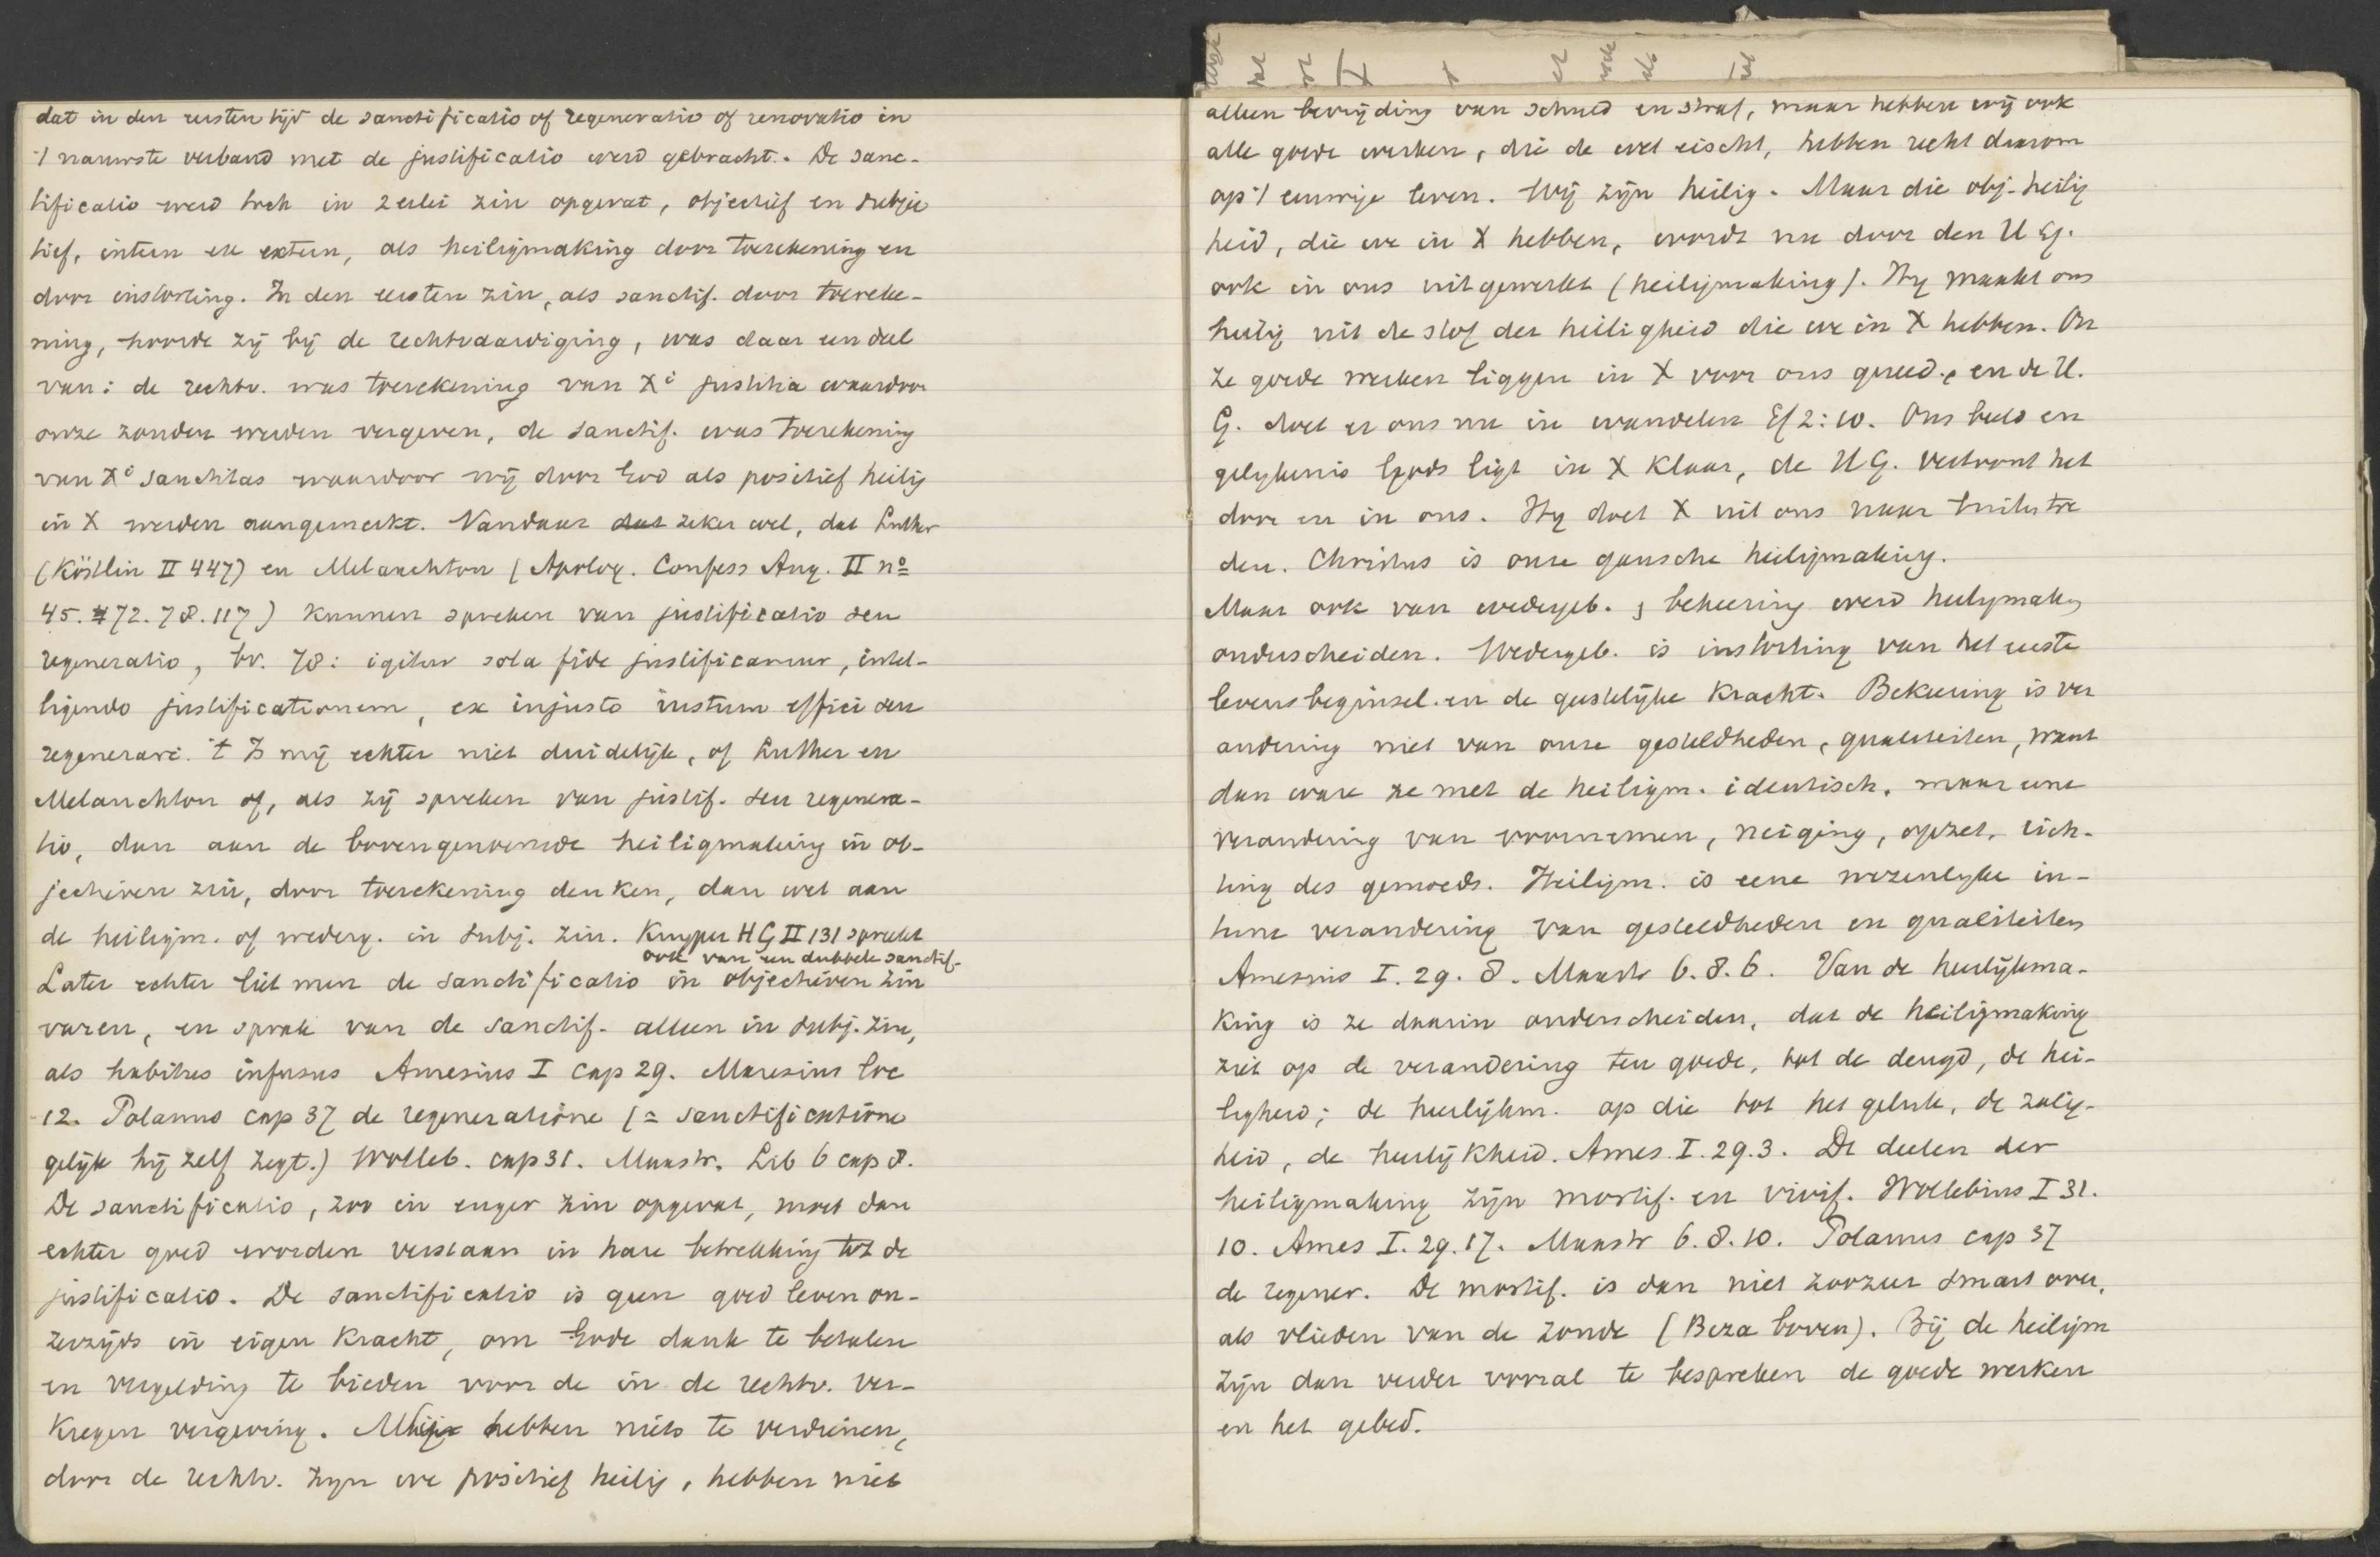 dat in den eersten tijd de sanctificatio of regeneratio of renovatio in
't nauwste verband met de justificatio werd gebracht. De sanc-
tificatio werd toch in 2erlei zin opgevat, objectief en subjec
tief, intern en extern, als heiligmaking door toerekening en
door instorting. In den eersten zin, als sanctif. door toereke-
ning, hoorde zij bij de rechtvaardiging, was daar een deel
van: de rechtv. was toerekening van Xi justitia waardoor
onze zonden werden vergeven, de sanctif. was toerekening
van Xi sanctitas waardoor wij door God als positief heilig
in X werden aangemerkt. Vandaar dat zeker wel, dat Luther
(Köstlin II 447) en Melanchton (Apolog. Confess Aug. II no
45. 72. 78. 117) kunnen spreken van justificatio seu
regeneratio, bv. 78: igitur sola fide justificamur, intel-
ligendo justificationem, ex injusto iustum effici seu
regenerari. 't Is mij echter niet duidelijk, of Luther en
Melanchton of, als zij spreken van justif. seu regenera-
tio, dan aan de bovengenoemde heiligmaking in ob-
jectieven zin, door toerekening denken, dan wel aan
de heiligm. of wederg. in subj. zin. Kuyper HG II 131 spreekt
ook van een dubbele sanctif.
Later echter liet men de sanctificatio in objectieven zin
varen, en sprak van de sanctif. alleen in subj. zin,
als habitus infusus Amesius I cap 29. Maresius loc
12. Polanus cap 37 de regeneratione (= sanctificatione
gelijk hij zelf zegt.) Wolleb. cap 31. Maastr. Lib 6 cap 8.
De sanctificatio, zoo in enger zin opgevat, moet dan
echter goed worden verstaan in hare betrekking tot de
justificatio. De sanctificatio is geen goed leven on-
zerzijds in eigen kracht, om Gode dank te betalen
en vergelding te bieden voor de in de rechtv. ver-
kregen vergeving. Wij hebben niets te verdienen,
door de rechtv. zyn we positief heilig, hebben niet
alleen bevrijding van schuld en straf, maar hebben wij ook
alle goede werken, die de wet eischt, hebben recht daarom
op 't eeuwige leven. Wij zijn heilig. Maar die obj. heilig
heid, die we in X hebben, wordt nu door den H G.
ook in ons uitgewerkt (heiligmaking). Hy maakt ons
heilig uit de stof der heiligheid die we in X hebben. On
ze goede werken liggen in X voor ons gereed, en de H.
G. doet er ons nu in wandelen Ef 2:10. Ons beeld en
gelykenis Gods ligt in X klaar, de H G. vertoont het
door en in ons. Hy doet X uit ons naar buiten tre
den. Christus is onze gansche heiligmaking.
Maar ook van wedergeb. & bekeering werd heiligmaking
onderscheiden. Wedergeb. is instorting van het eerste
levensbeginsel en de geestelijke kracht. Bekeering is ver
andering niet van onze gesteldheden, qualiteiten, want
dan ware ze met de heiligm. identisch, maar eene
verandering van voornemen, neiging, opzet, rich-
ting des gemoeds. Heiligm. is eene wezenlyke in-
terne verandering van gesteldheden en qualiteiten
Amesius I. 29. 8. Maastr 6. 8. 6. Van de heerlijkma-
king is ze daarin onderscheiden, dat de heiligmaking
ziet op de verandering ten goede, tot de deugd, de hei-
ligheid; de heerlijkm. op die tot het geluk, de zalig-
heid, de heerlijkheid. Ames. I. 29.3. De deelen der
heiligmaking zijn mortif. en vivif. Wollebius I 31.
10. Ames I. 29. 17. Maastr 6. 8. 10. Polanus cap 37
de regener. De mortif. is dan niet zoozeer smart over,
als vlieden van de zonde (Beza boven). Bij de heiligm
zijn dan verder vooral te bespreken de goede werken
en het gebed.